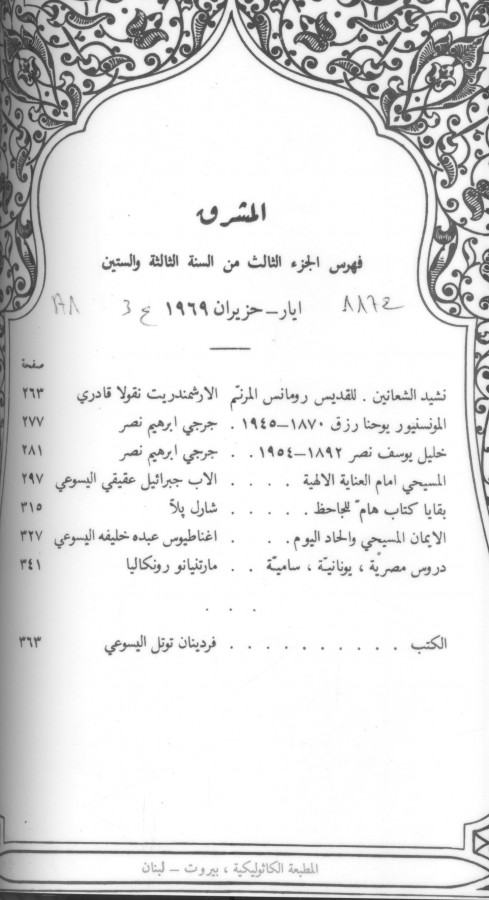 المشرق
فهرس الجزء الثالث من السنة الثالثة والستين
ايار – حزيران ١٩٦٩
صفحة
نشيد الشعانين . للقديس رومانس المرنّم الارشمندريت نقولا قادري ٢٦٣
المونسنيور يوحنا رزق ١٨٧٠–١٩٤٥ . جرجي ابرهيم نصر ٢٧٧
خليل يوسف نصر ١٨٩٢–١٩٥٤ . . جرجي ابرهيم نصر ٢٨١
المسيحي امام العناية الالهية . . . . الاب جبرائيل عقيقي اليسوعي ٢٩٧
بقايا كتاب هامّ للجاحظ . . . . . شارل پلاّ ٣١٥
الايمان المسيحي والحاد اليوم . . . اغناطيوس عبده خليفه اليسوعي ٣٢٧
دروس مصريّة ، يونانيّة ، ساميّة . . مارتنيانو رونكاليا ٣٤١
. . .
الكتب . . . . . . . . . . فردينان توتل اليسوعي ٣٦٣
المطبعة الكاثوليكية ، بيروت – لبنان